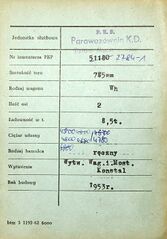 Jednostka służbowa P. K. P.
Parowozownia K.D.
Nr inwentarza PKP 51180 2784-1
Szerokość toru 785mm
Rodzaj wagonu Wh
Ilość osi 2
Ładowność w t. 8,5t.
Ciężar własny 4780
Rodzaj hamulca ręczny
Wytwórnia Wytw. Wag. i Most.
Konstal
Rok budowy 1953r.